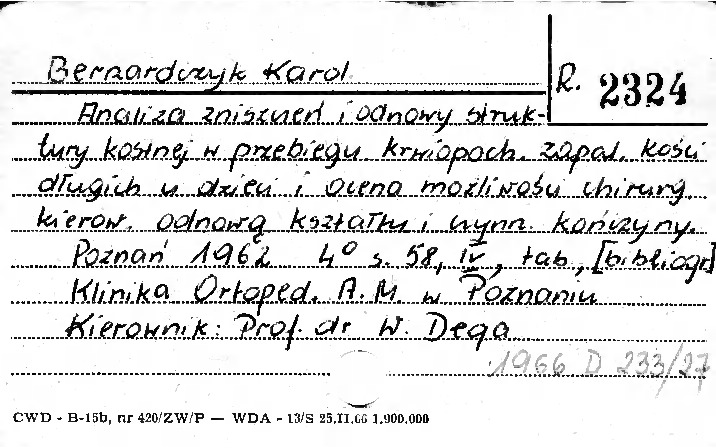 Bernardczyk Karol
R. 2324
Analiza zniszczeń i odnowy struk-
tury kostnej w przebiegu krwiopoch. zapal. kości
długich u dzieci i ocena możliwości chirurg.
kierow. odnową kształtu i wym. kończyny.
Poznań 1962 4° s. 58, IV, tab., [bibliogr]
Klinika Ortoped. A.M. w Poznaniu
Kierownik: Prof. dr W. Dega
1966 D 233/27
CWD - B-15b, nr 420/ZW/P — WDA - 13/S 25.II.66 1.900.000